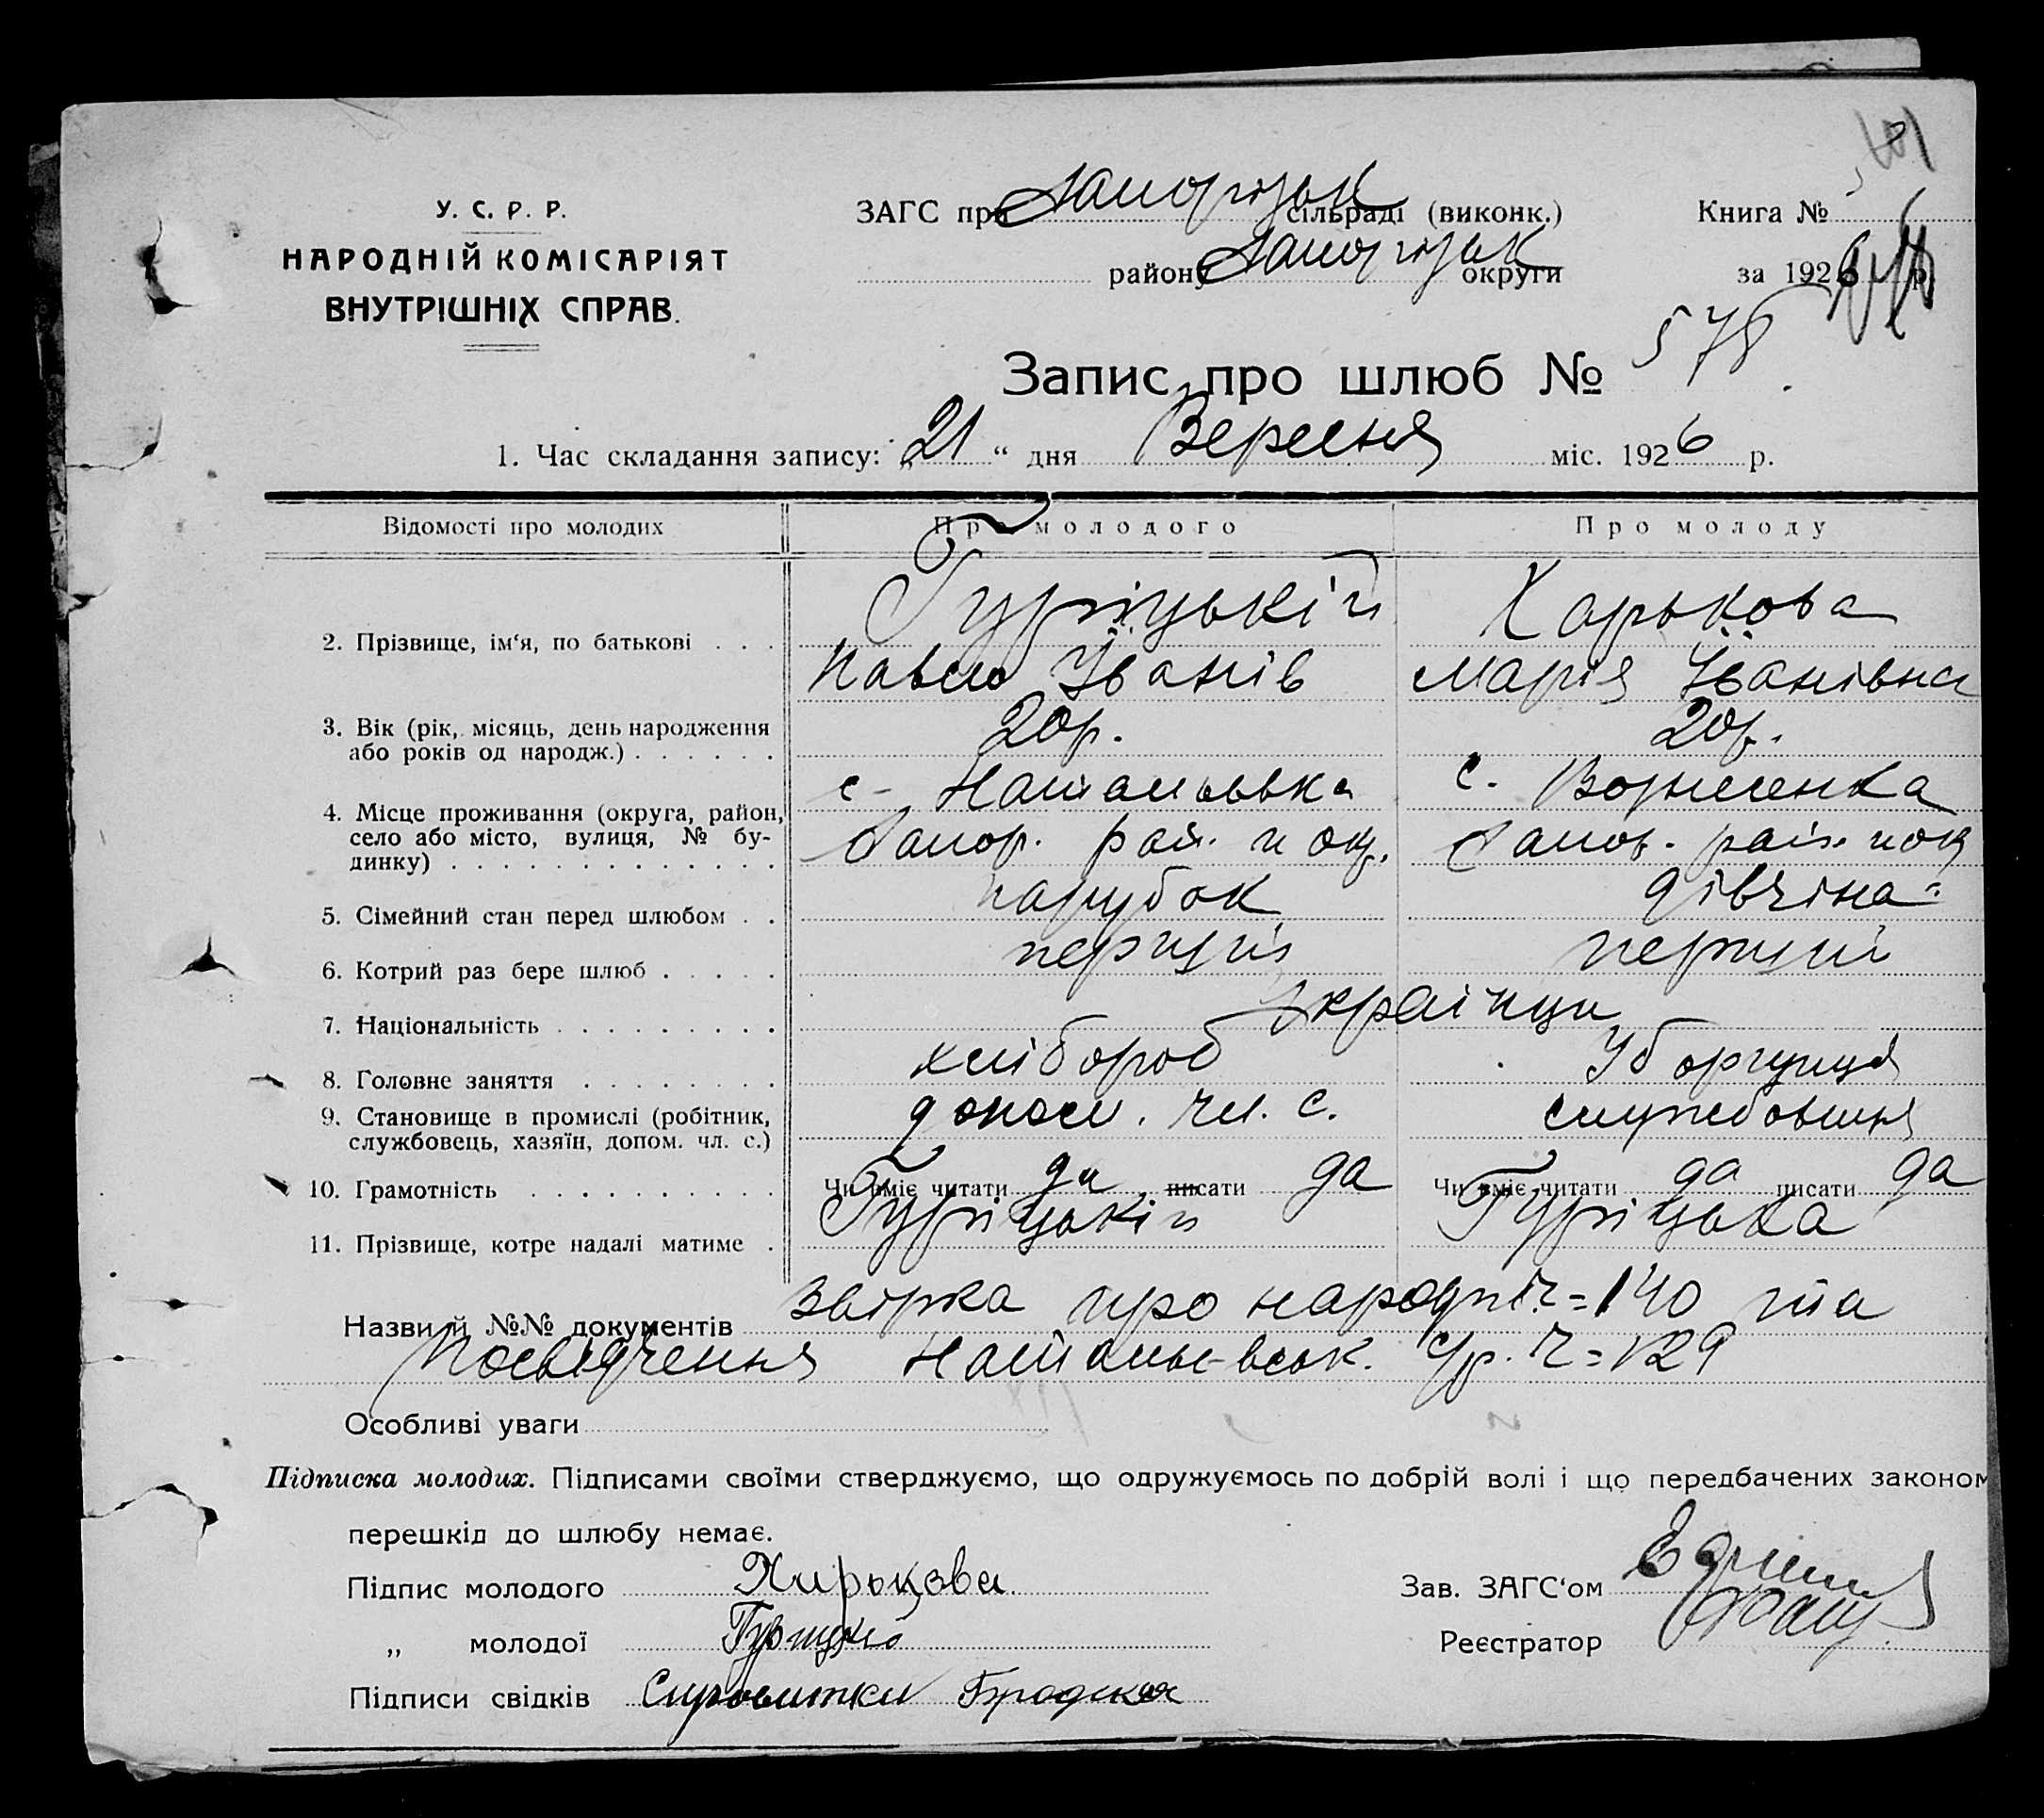 У. С. Р. Р.
НАРОДНІЙ КОМІСАРІЯТ
ВНУТРІШНІХ СПРАВ.
ЗАГС при Запорізьк сільраді (виконк.)
району Запорізьк округи
Книга №
за 1926 р.
Запис про шлюб № 578
1. Час складання запису: „21“ дня Вересня міс. 1926 р.
Відомості про молодих Про молодого Про молоду
2. Прізвище, ім‘я, по батькові . . . Гуріцькій Харькова
Павло Іванів Марія Іванівна
3. Вік (рік, місяць, день народження 20р. 20р.
або років од народж.) . . . . . .
4. Місце проживання (округа, район, с. Наталівка с. Вознесенка
село або місто, вулиця, № бу- Запор. рай. и окр. Запор. рай. и окр
динку) . . . . . . . . . . . . .
5. Сімейний стан перед шлюбом . . парубок дівчіна
6. Котрий раз бере шлюб . . . . . перший перший
7. Національність . . . . . . . . . українци
8. Головне заняття . . . . . . . . хлібороб Уборщиця
9. Становище в промислі (робітник, допом. чл. с. службовиця
службовець, хазяїн, допом. чл. с.)
10. Грамотність . . . . . . . . . . Чи вміє читати да писати да Чи вміє читати да писати да
11. Прізвище, котре надалі матиме . Гуріцькій Гуріцька
Назви й №№ документів Звірка про народж. ч=140 та
Посвідчення Наталівськ. с/р. ч=129
Особливі уваги
Підписка молодих. Підписами своїми стверджуємо, що одружуємось по добрій волі і що передбачених законом
перешкід до шлюбу немає.
Підпис молодого Харькова
„ молодої Гурицкій
Підписи свідків Сироватки Бродская
Зав. ЗАГС‘ом
Реєстратор